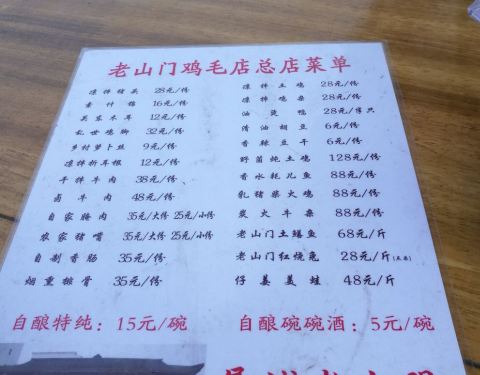 老山门鸡毛店总店菜单
凉拌猪头 28元/份
素什锦 16元/份
美东木耳 12元/份
乱世鸡脚 32元/份
乡村萝卜丝 9元/份
凉拌折耳根 12元/份
干拌牛肉 38元/份
卤牛肉 48元/份
自家腌肉 35元/大份 25元/小份
农家猪嘴 35元/大份 25元/小份
自制香肠 35元/份
烟熏排骨 35元/份
凉拌土鸡 28元/份
凉拌鸡杂 28元/份
油烫鸭 28元/半只
清油胡豆 6元/份
香辣豆干 6元/份
野菌炖土鸡 128元/份
香水耗儿鱼 88元/份
乳猪柴火鸡 88元/份
炭火牛杂 88元/份
老山门土鳝鱼 68元/斤
老山门红烧兔 28元/斤
仔姜美蛙 48元/斤
自酿特纯：15元/碗
自酿碗碗酒：5元/碗